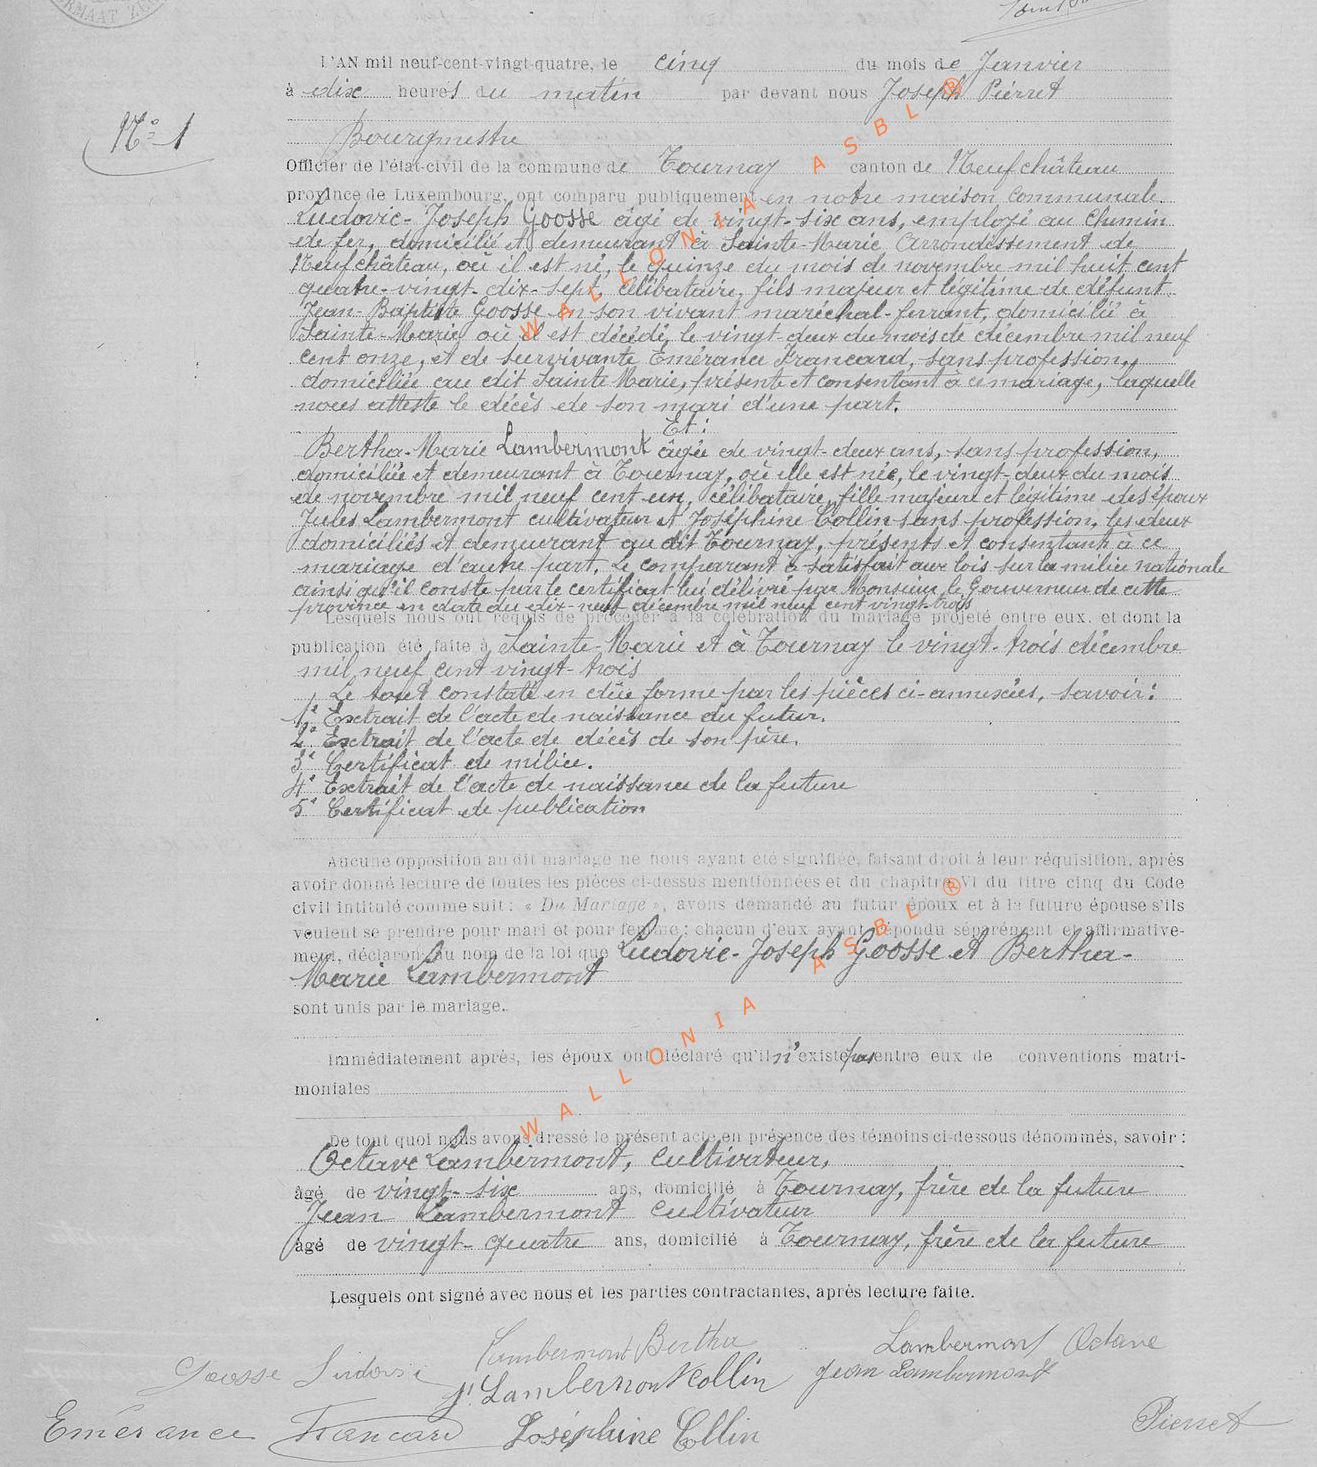 N° 1
L'AN mil neuf-cent-vingt-quatre, le cinq du mois de Janvier
à dix heures du matin par devant nous Joseph Pierret
Bourgmestre
Officier de l'état-civil de la commune de Tournay canton de Neufchâteau
province de Luxembourg, ont comparu publiquement en notre maison communale
Ludovic-Joseph Goosse âgé de vingt-six ans, employé au chemin
de fer, domicilié et demeurant à Sainte-Marie arrondissement de
Neufchâteau, où il est né, le quinze du mois de novembre mil huit cent
quatre-vingt-dix-sept, célibataire, fils majeur et légitime de défunt
Jean-Baptiste Goosse en son vivant maréchal-ferrant, domicilié à
Sainte-Marie où il est décédé, le vingt-deux du mois de décembre mil neuf
cent onze, et de survivante Emérance Francard, sans profession,
domiciliée au dit Sainte Marie, présente et consentant à ce mariage, laquelle
nous atteste le décès de son mari d'une part.
Et:
Bertha-Marie Lambermont âgée de vingt-deux ans, sans profession,
domiciliée et demeurant à Tournay, où elle est née, le vingt-deux du mois
de novembre mil neuf cent un, célibataire, fille majeure et légitime des époux
Jules Lambermont cultivateur et Joséphine Collin sans profession, les deux
domiciliés et demeurant au dit Tournay, présents et consentants à ce
mariage d'autre part. Le comparant a satisfait aux lois sur la milice nationale
ainsi qu'il conste par le certificat lui délivré par Monsieur le Gouverneur de cette
province en date du dix-neuf décembre mil neuf cent vingt-trois
Lesquels nous ont requis de procéder à la célébration du mariage projeté entre eux, et dont la
publication été faite à Sainte-Marie et à Tournay le vingt-trois décembre
mil neuf cent vingt-trois
Le tout constaté en due forme par les pièces ci-annexées, savoir:
1° Extrait de l'acte de naissance du futur.
2° Extrait de l'acte de décès de son père.
3° Certificat de milice.
4° Extrait de l'acte de naissance de la future
5° Certificat de publication
Aucune opposition au dit mariage ne nous ayant été signifiée, faisant droit à leur réquisition, après
avoir donné lecture de toutes les pièces ci-dessus mentionnées et du chapitre VI du titre cinq du Code
civil intitulé comme suit : « Du Mariage », avons demandé au futur époux et à la future épouse s'ils
veulent se prendre pour mari et pour femme ; chacun d'eux ayant répondu séparément et affirmative-
ment, déclarons au nom de la loi que Ludovic-Joseph Goosse et Bertha-
Marie Lambermont
sont unis par le mariage.
Immédiatement après, les époux ont déclaré qu'il n'existe pas entre eux de conventions matri-
moniales
De tout quoi nous avons dressé le présent acte en présence des témoins ci-dessous dénommés, savoir :
Octave Lambermont, cultivateur,
âgé de vingt-six ans, domicilié à Tournay, frère de la future
Jean Lambermont cultivateur
âgé de vingt-quatre ans, domicilié à Tournay, frère de la future
Lesquels ont signé avec nous et les parties contractantes, après lecture faite.
Lambermont Bertha Lambermont Octave
Goosse Ludovic J. Lambermont Collin Jean Lambermont
Emérance Francard Joséphine Collin Pierret
WALLONIA ASBL ®
WALLONIA ASBL ®